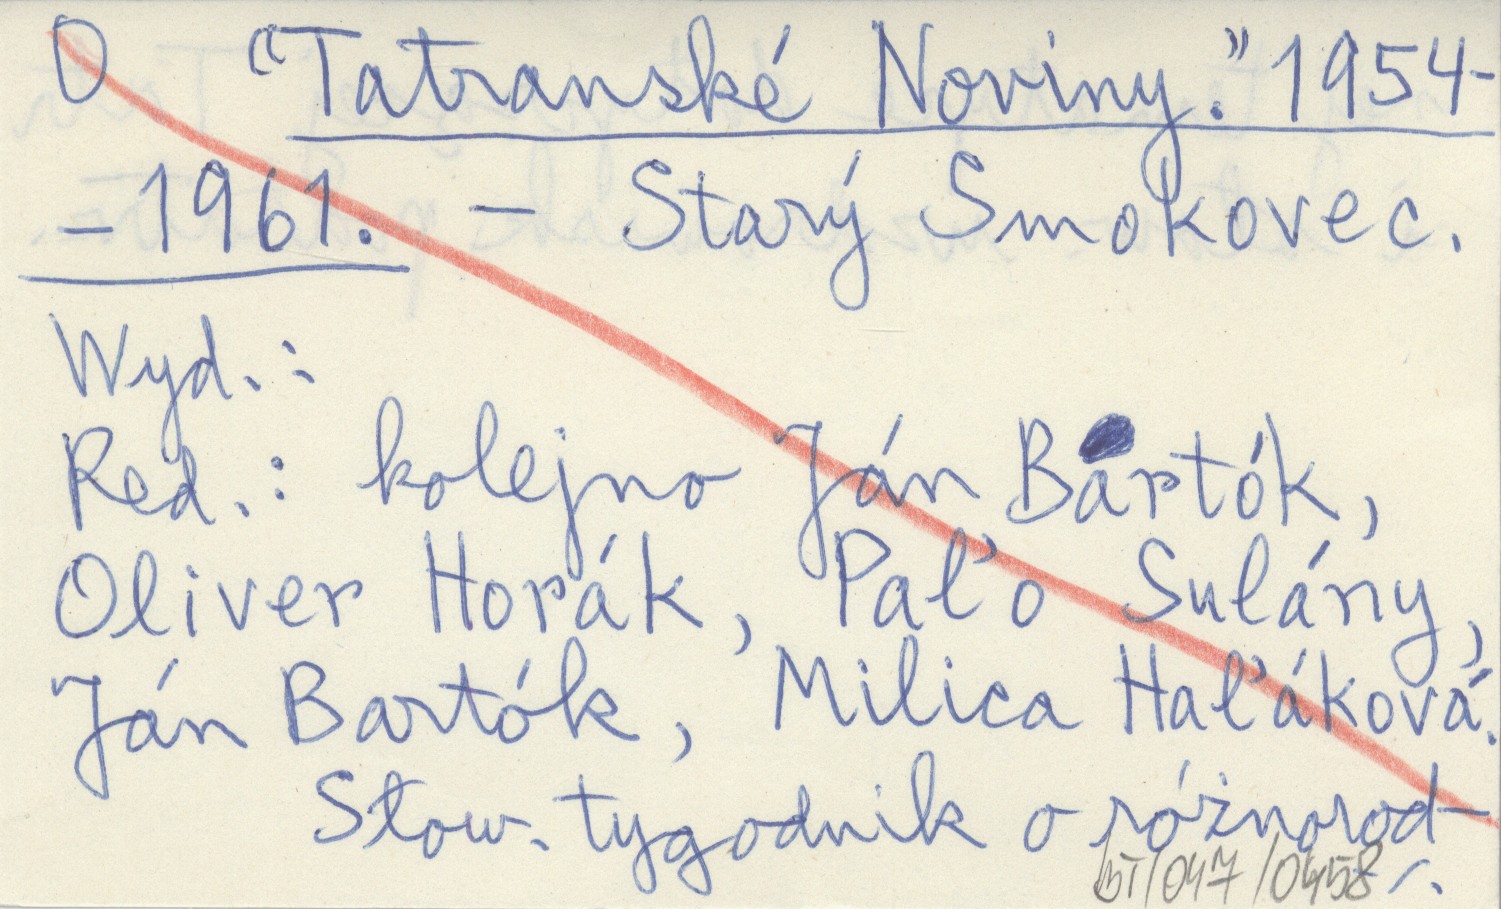 O "Tatranské Noviny." 1954-
- 1961. - Starý Smokovec.
Wyd.:
Red.: kolejno Ján Bartók,
Oliver Horák, Paľo Sulány,
Ján Bartók, Milica Haľáková.
Słow. tygodnik o różnorod-
BT/047/0458 ./.